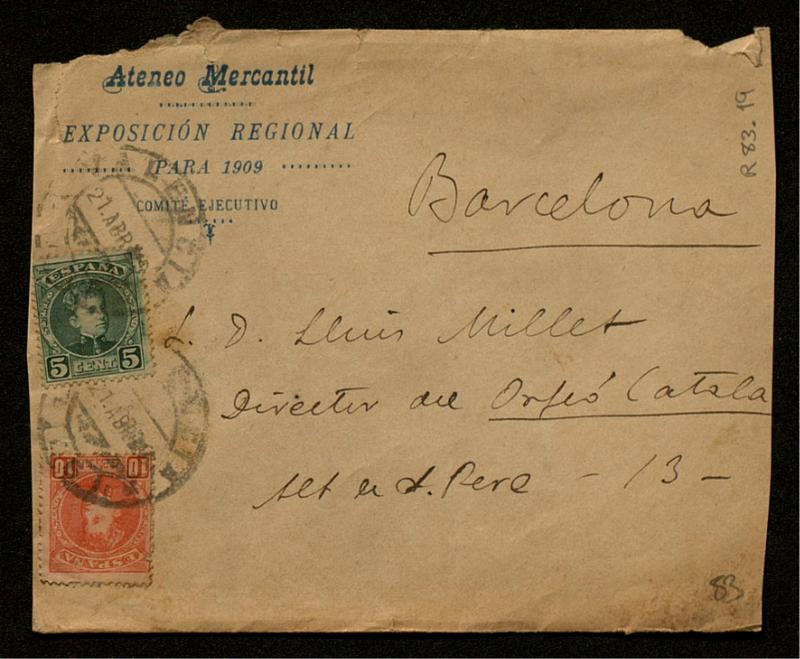 Ateneo Mercantil
EXPOSICIÓN REGIONAL
PARA 1909
COMITÉ EJECUTIVO
R 83.19
Barcelona
S. D. Lluis Millet
Director del Orfeó Català
Alt de S. Pere - 13 -
VALENCIA
21.ABR
ESPAÑA
5 CENT. 5
VALENCIA
21.ABR
10 10
ESPAÑA
83